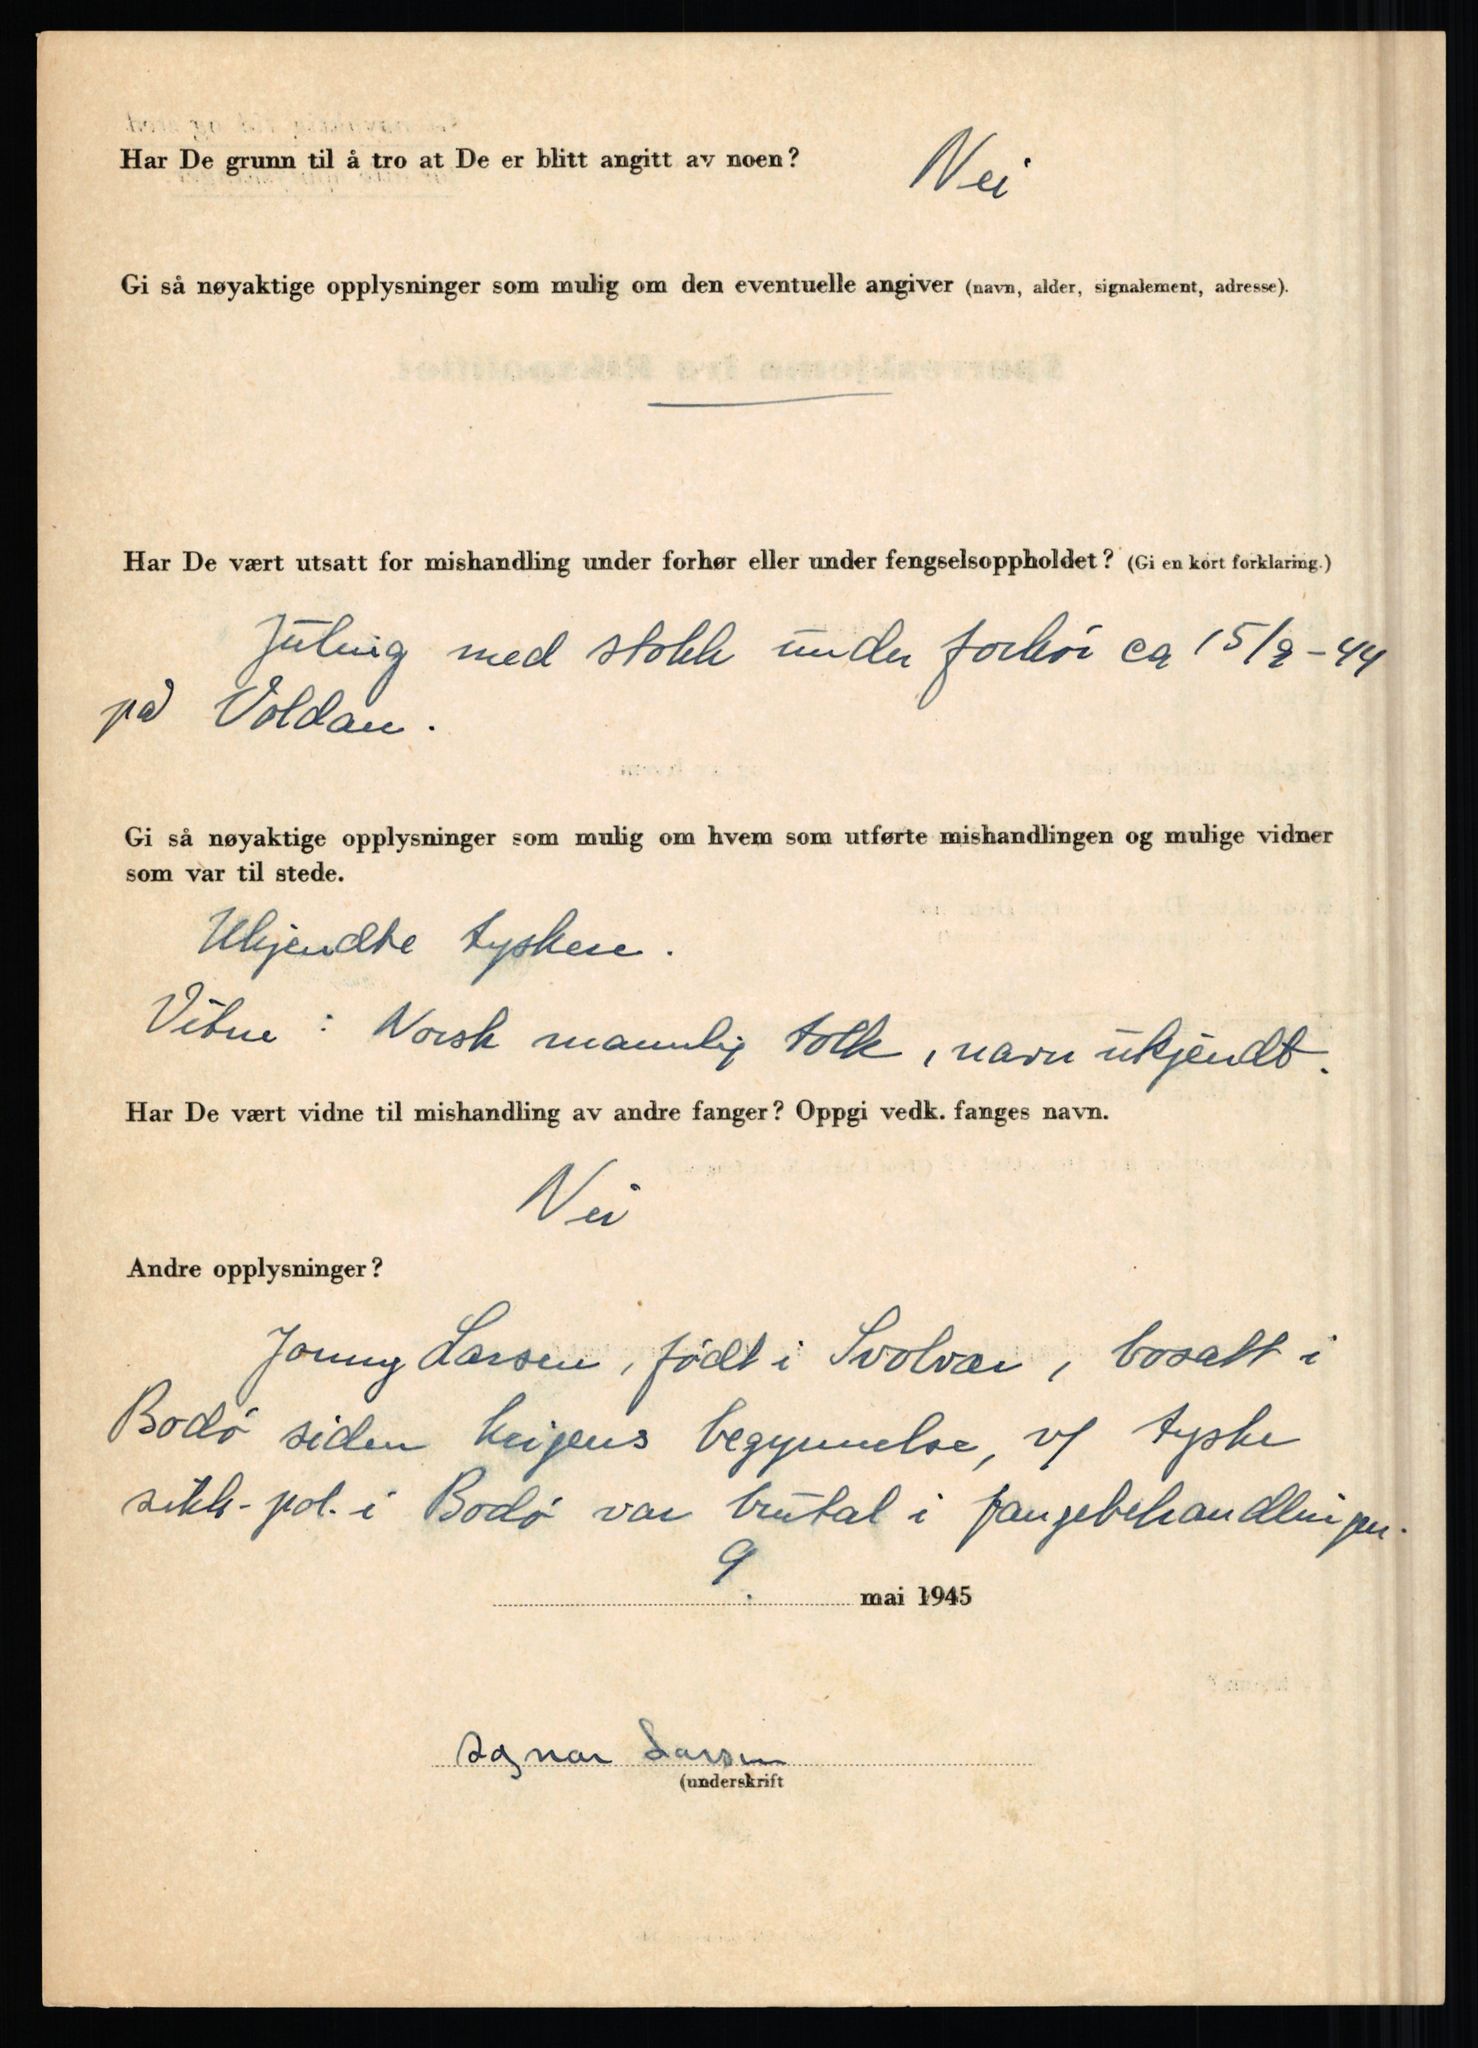 Har De grunn til å tro at De er blitt angitt av noen? Nei
Gi så nøyaktige opplysninger som mulig om den eventuelle angiver (navn, alder, signalement, adresse).
Har De vært utsatt for mishandling under forhør eller under fengselsoppholdet? (Gi en kort forklaring.)
Juling med stokk under forhör ca 15/9-44
på Voldan.
Gi så nøyaktige opplysninger som mulig om hvem som utførte mishandlingen og mulige vidner
som var til stede.
Ukjendte tyskere.
Vitne: Norsk mannlig tolk, navn ukjendt.
Har De vært vidne til mishandling av andre fanger? Oppgi vedk. fanges navn.
Nei
Andre opplysninger?
Jonny Larsen, födt i Svolvær, bosatt i
Bodö siden krigens begynnelse, v/ tyske
sikk-pol. i Bodö var brutal i fangebehandlingen.
9. mai 1945
Larsen
(underskrift